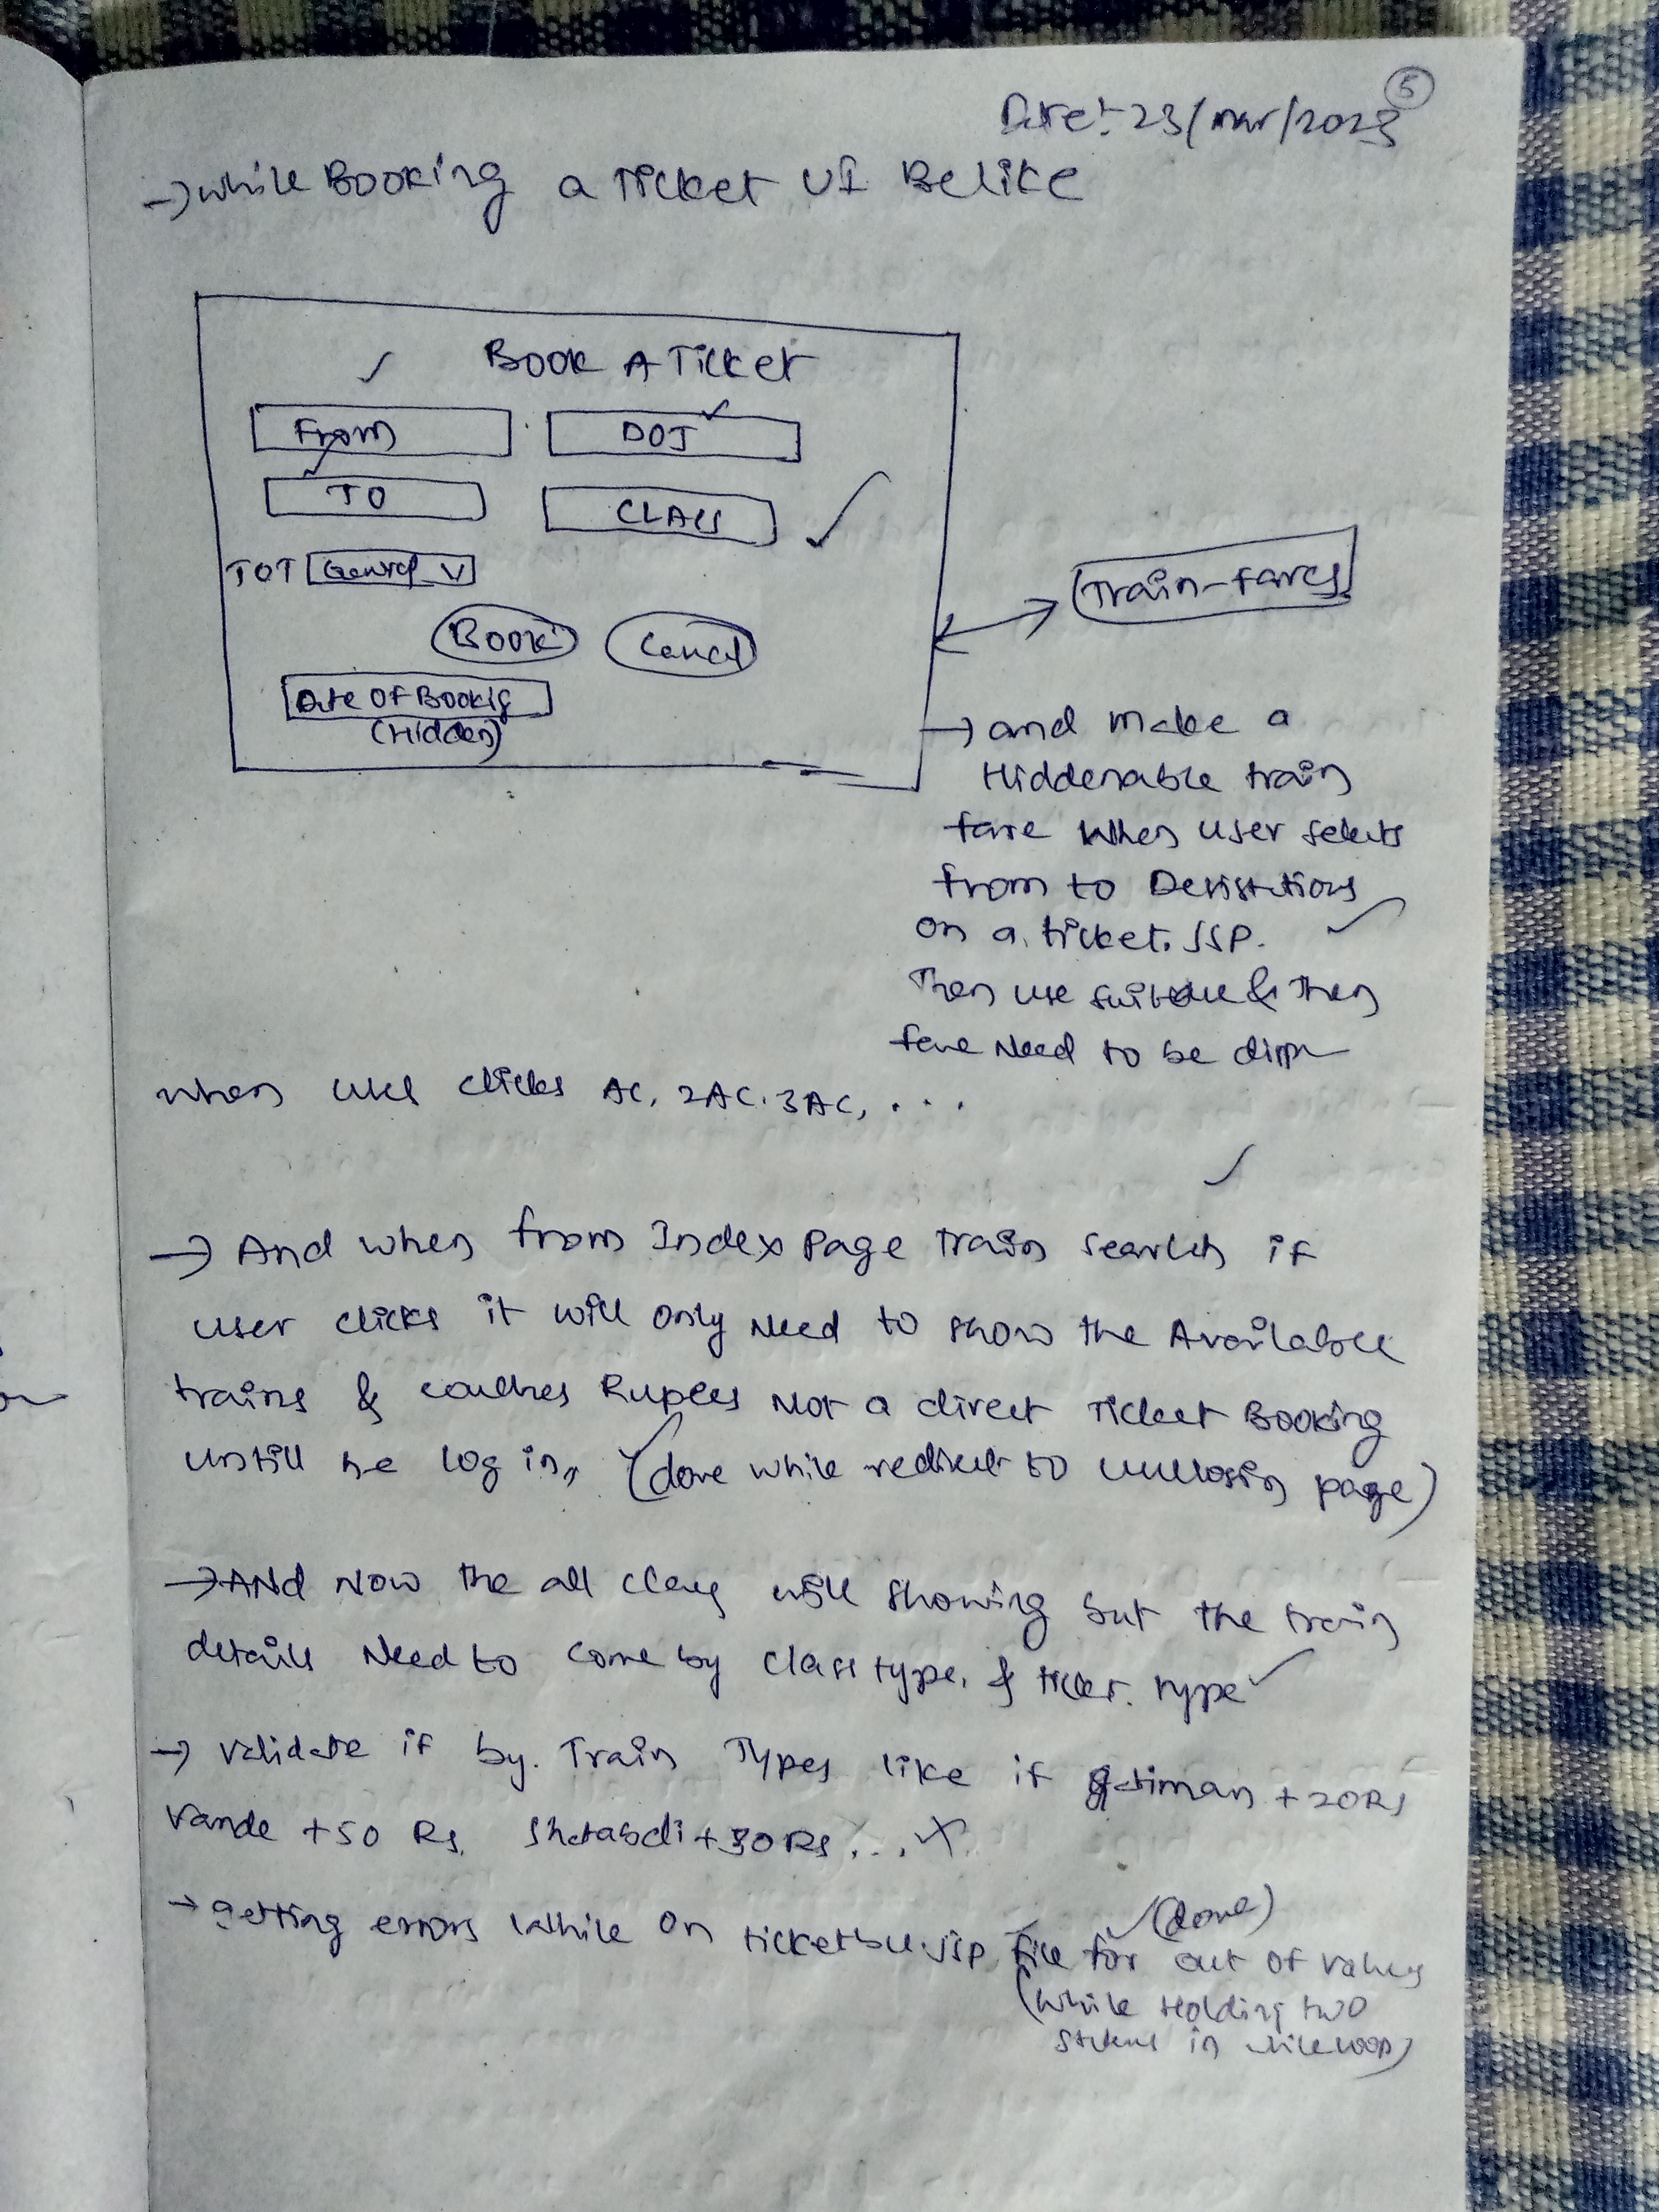 5
Date:- 23/mar/2023
→ while Booking a Ticket UI Belike
Book A Ticket
From DOJ
TO CLASS
TOT General V
Book Cancel
Date Of Bookig
(Hidden)
Train-fares
→ and make a
Hiddenable train
fare when user selects
from to
on a ticket. JSP.
Then use & then
fare Need to be
when user clicks AC, 2AC. 3AC, ...
→ And when from Index page train search if
user clicks it will only need to show the Available
trains & coaches Rupees Not a direct Ticket Booking
untill he log in,, (done while redirect to page)
→ AND Now the all class will showing but the train
details Need to come by class type. & ticket. type
→ validate if by. Train Types like if gatiman +20Rs
Vande +50 Rs. Shatabdi +30Rs ...
→ getting errors while on .jsp file for out of values
(done)
(while Holding two
in while loop)